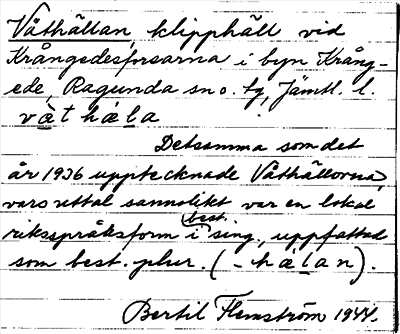 Våthällan klipphäll vid
Krångedesforsarna i byn Krång-
ede, Ragunda sn o. tg, Jämtl. l.
våthäla
Detsamma som det
år 1936 upptecknade Våthällorna,
vars uttal sannolikt var en lokal
riksspråksform i best. sing., uppfattad
som best. plur. (-hälan).
Bertil Flemström 1944.